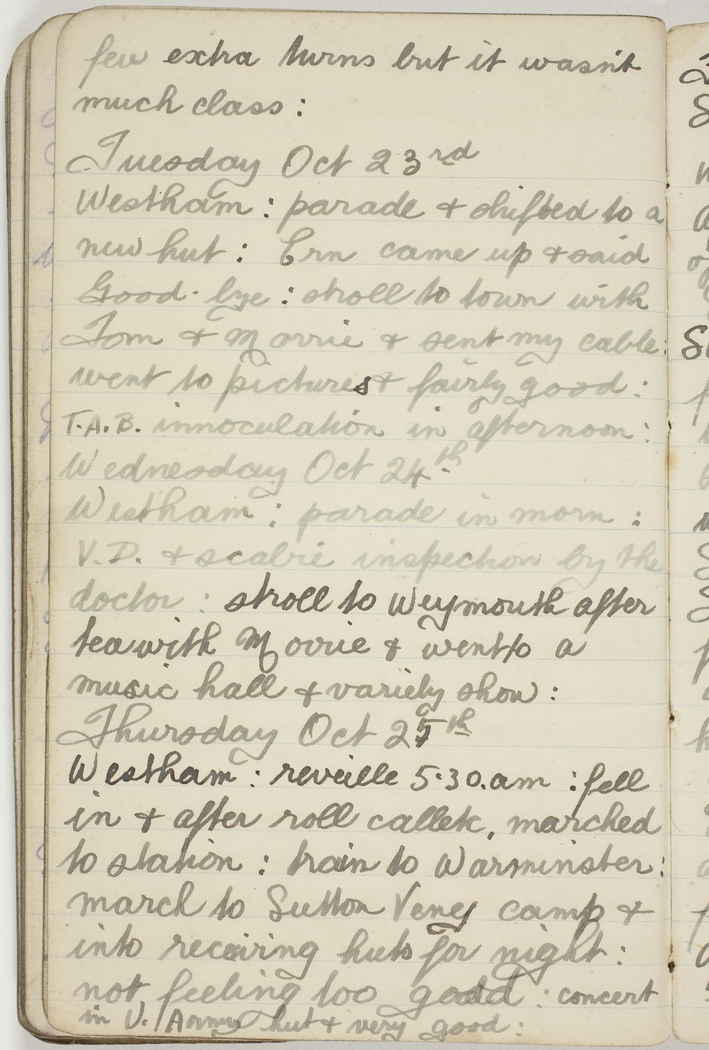 few extra turns but it wasn't
much class :
Tuesday Oct 23rd
Westham : parade & shifted to a
new hut : Ern came up & said
Good-bye : stroll to town with
Tom & Morrie & sent my cable :
went to pictures & fairly good :
T.A.B. innoculation in afternoon :
Wednesday Oct 24th
Westham : parade in morn :
V.D. & scabie inspection by the
doctor : stroll to Weymouth after
tea with Morrie & went to a
music hall & variety show :
Thursday Oct 25th
Westham : reveille 5.30.am : fell
in & after roll call etc, marched
to station : train to Warminster :
march to Sutton Veney camp &
into receiving huts for night :
not feeling too good : concert
in hut & very good :